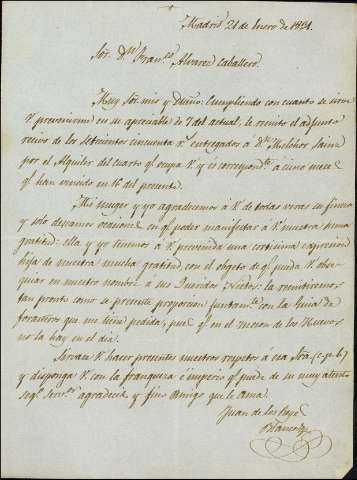 Madrid 21 de Enero de 1834.
Sor. Dn. Franco. Alvarez Caballero.
Muy Sor. mio y Dueño: Cumpliendo con cuanto se sirve
V. prevenirme en su apreciable de 7 del actual, le remito el adjunto
recivo de los setecientos cincuenta rs. entregados á Dn. Melchor
por el Alquiler del cuarto qe. ocupa V. y és correspondte. á cinco meses
qe. han vencido en 16 del presente.
Mi muger y yo agradecemos á V. de todas veras su fineza
y sólo deseamos ocasiones en qe. poder manifestar á V. nuestra
gratitud: ella y yo tenemos á V. prevenida una cortisima expresion
hija de nuestra mucha gratitud con el objeto de qe. pueda V. obse-
quiar en nuestro nombre á sus Queridos Nietos: la remitiremos
tan pronto como se presente proporcion juntamte. con la Guia de
forasteros que me tiene pedida, pues qe. en el meson de los Huevos
no la hay en el dia.
Sirvase V. hacer presentes nuestros respetos á esa Sra. (c. p. b.)
y disponga V. con la franqueza é imperio qe. puede de su muy atento
segº. servor. agradecido y fino Amigo que le ama.
Juan de los Reyes